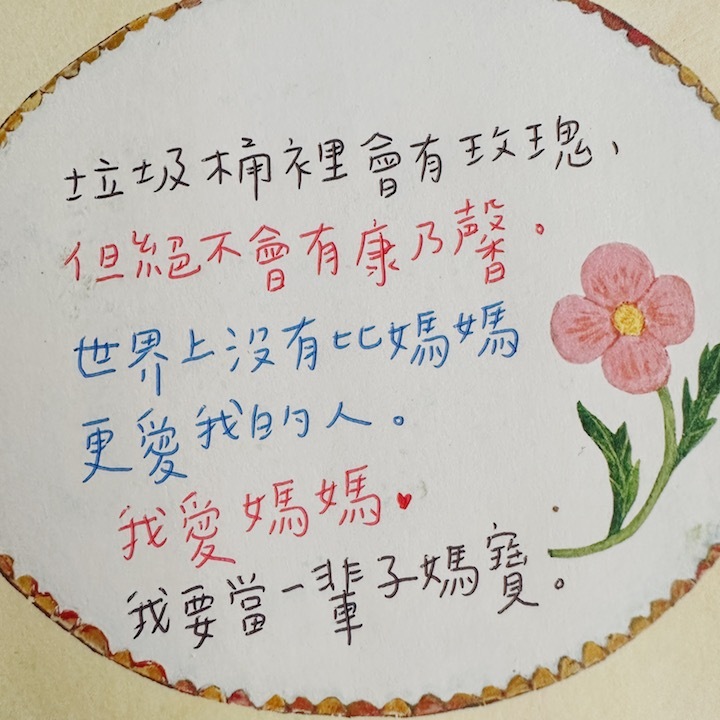 垃圾桶裡會有玫瑰、
但絕不會有康乃馨。
世界上沒有比媽媽
更愛我的人。
我愛媽媽♥
我要當一輩子媽寶。